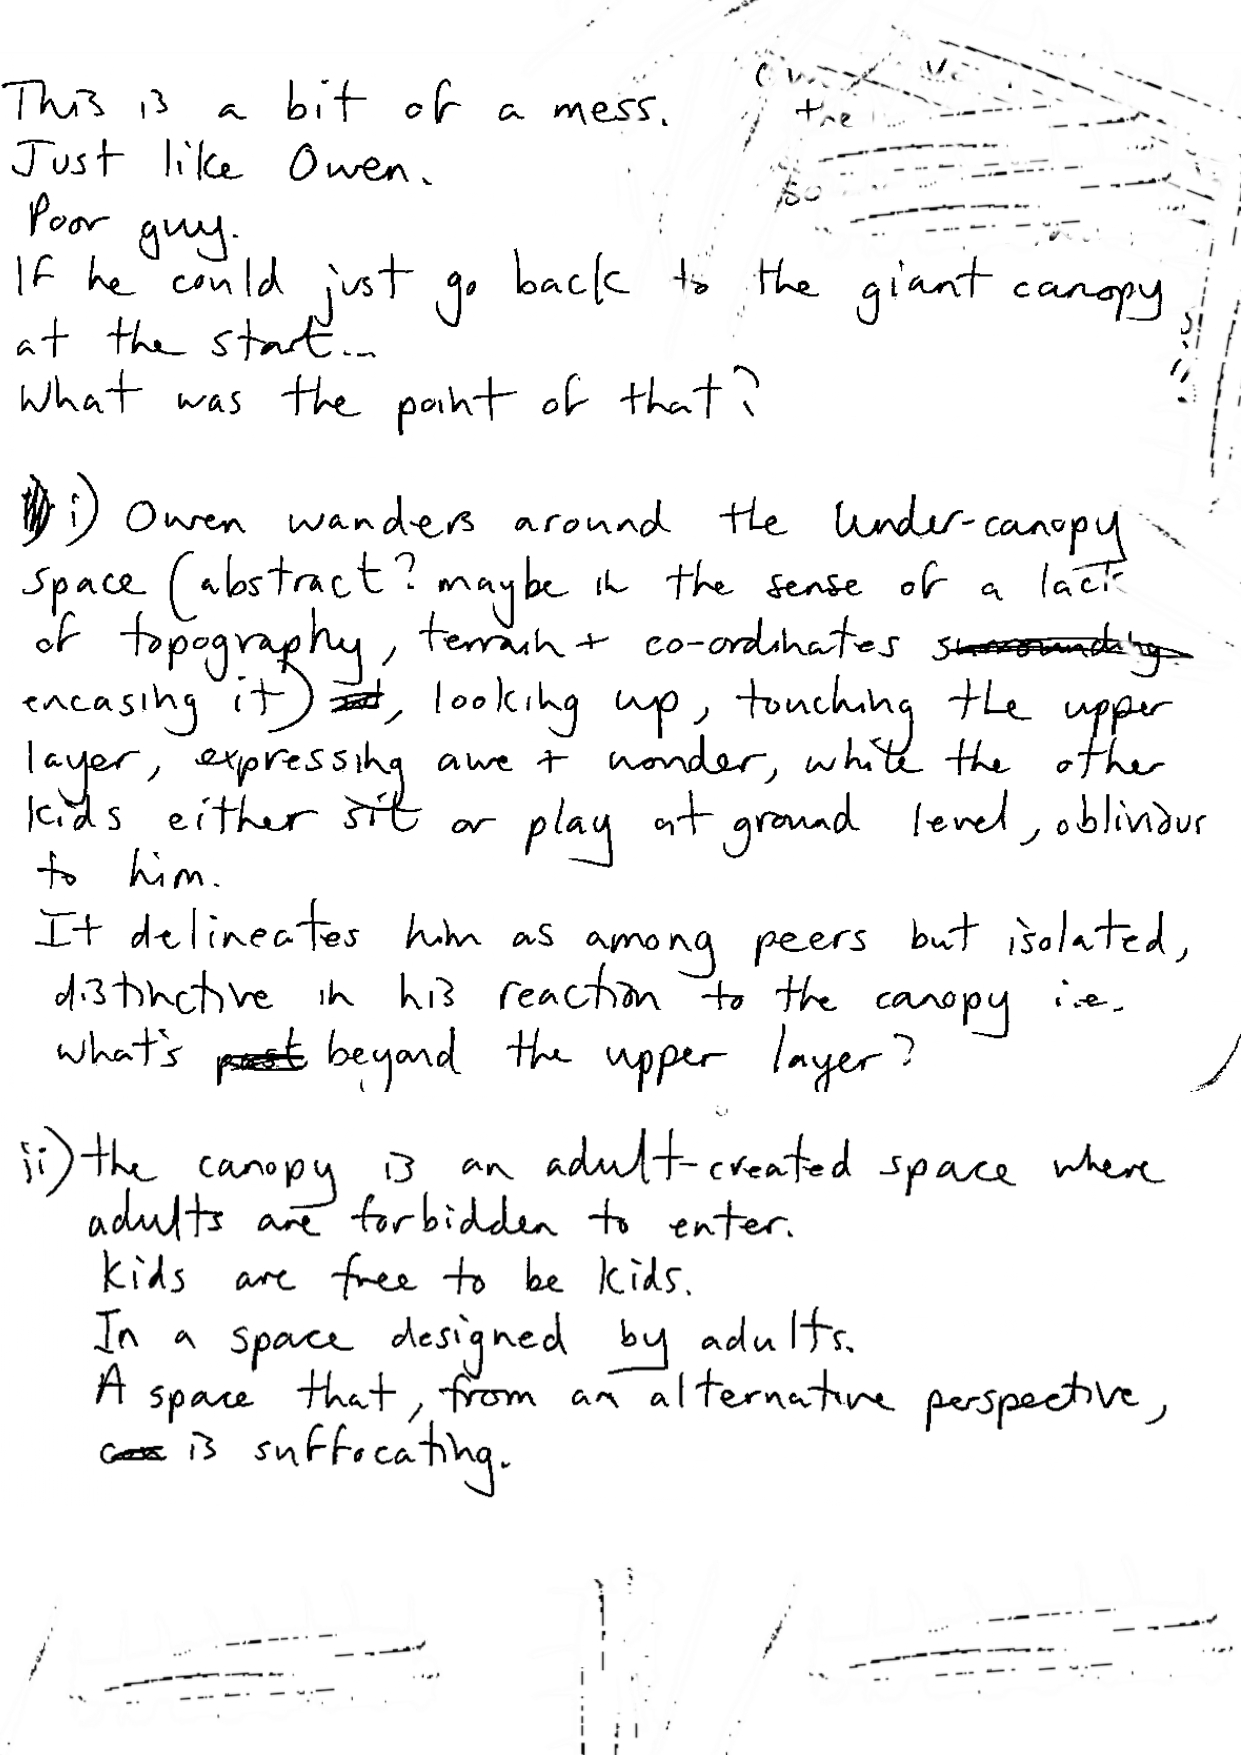 This is a bit of a mess.
Just like Owen.
Poor guy.
If he could just go back to the giant canopy
at the start...
What was the point of that?
i) Owen wanders around the under-canopy
space (abstract? maybe in the sense of a lack
of topography, terrain + co-ordinates surrounding
encasing it), looking up, touching the upper
layer, expressing awe + wonder, while the other
kids either sit or play at ground level, oblivious
to him.
It delineates him as among peers but isolated,
distinctive in his reaction to the canopy i.e.
what's past beyond the upper layer?
ii) the canopy is an adult-created space where
adults are forbidden to enter.
Kids are free to be kids.
In a space designed by adults.
A space that, from an alternative perspective,
is suffocating.